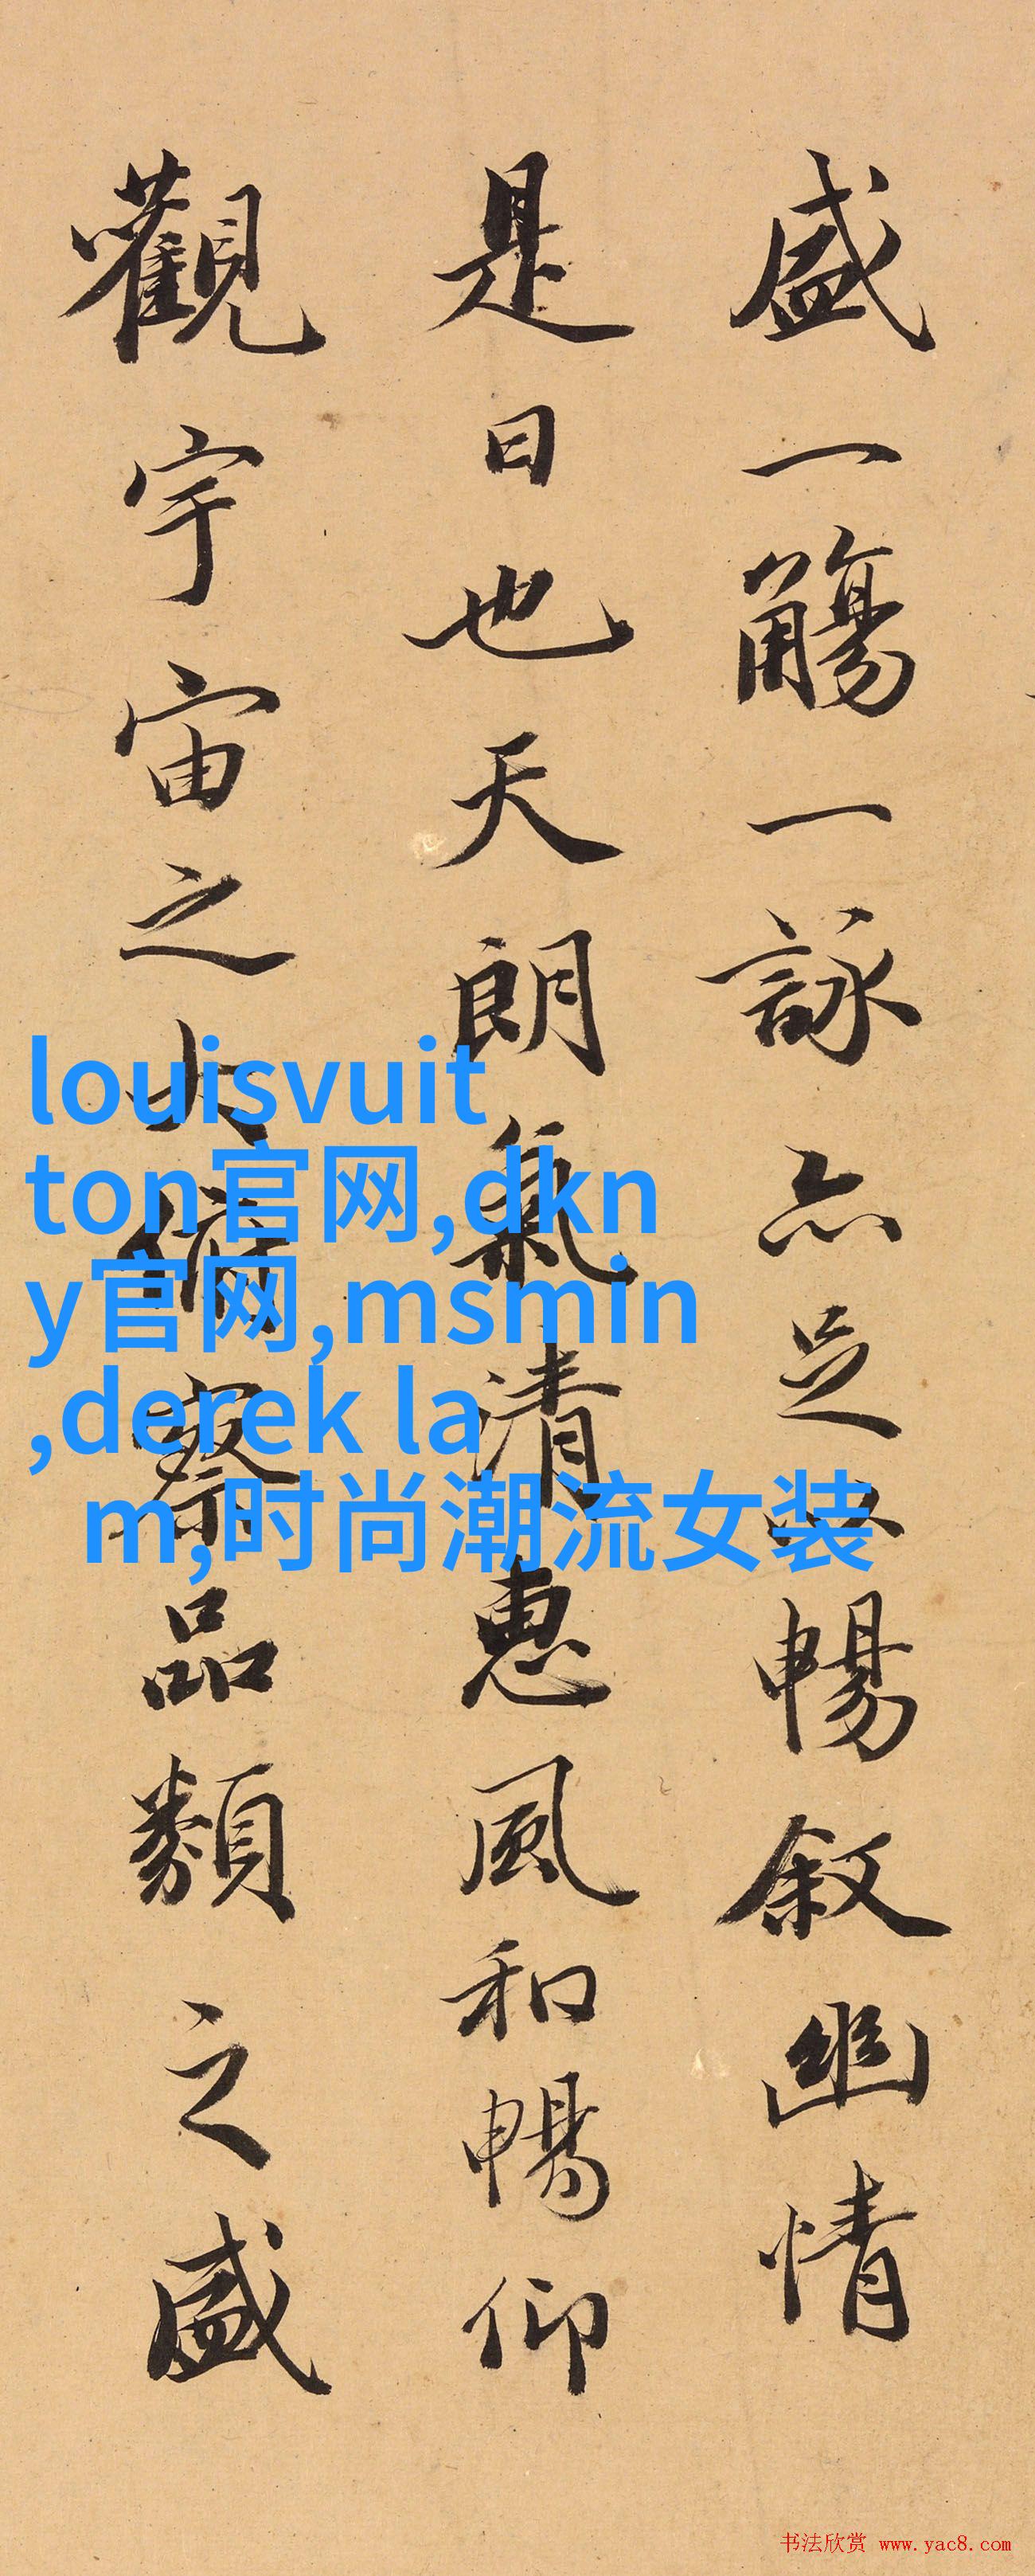 盛一觴一詠亦足以暢叙幽情
是日也天朗氣清惠風和暢仰
觀宇宙之大俯察品類之盛
louisvuit
ton官网,dkn
y官网,msmin
,derek la
m,时尚潮流女装
书法欣赏 www.yac8.com